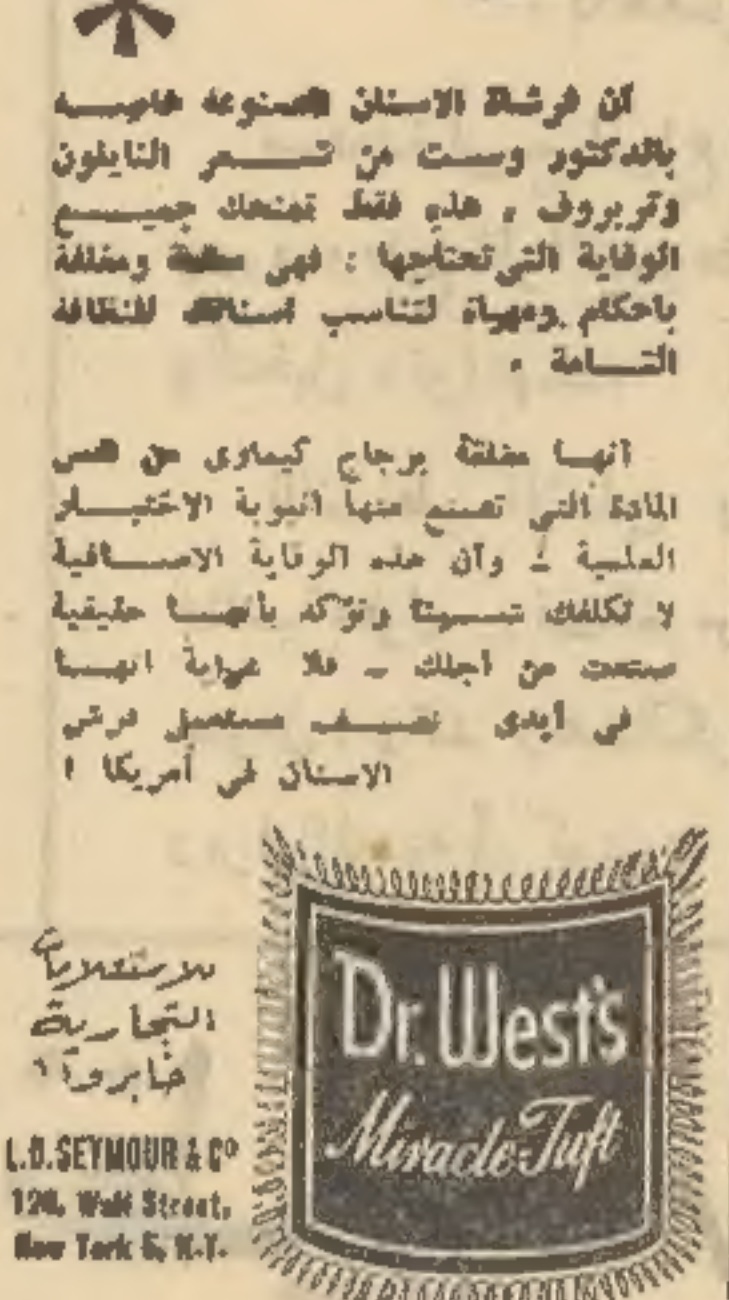 ان فرشاة الاسنان المصنوعة خاصـــه
بالدكتور وســت من شـــــعر النايلون
وتربروف ، هذه فقط تمنحك جميـــع
الوقاية التي تحتاجها : فهي معقمة ومغلفة
باحكام ومهياة لتناسب اسنانك للنظافة
التـــامة .
انهــا مغلفة بزجاج كيماوى من نفس
المادة التي تصنع منها انبوبة الاختبـــار
العلمية - وان هذه الوقاية الاضـــافية
لا تكلفك شـــيئا وتؤكد بأنهـــا حقيقية
صنعت من اجلك - فلا غرابة انهـــا
في أيدى نصـــف مستعملى فرش
الاسنان في أمريكا !
للاستعلامات
التجارية
خابروا :
Dr. West's
Miracle-Tuft
L.D. SEYMOUR & Co
120, Wall Street,
New York 5, N.Y.